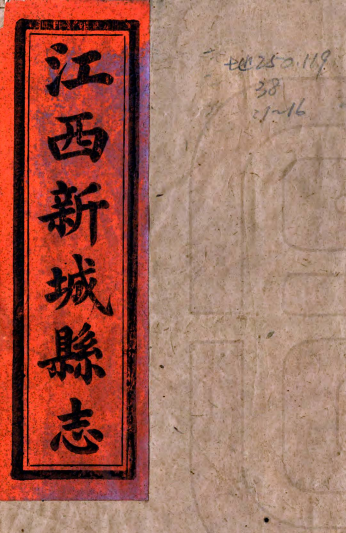 江西新城縣志
地250.119
38
:1~16